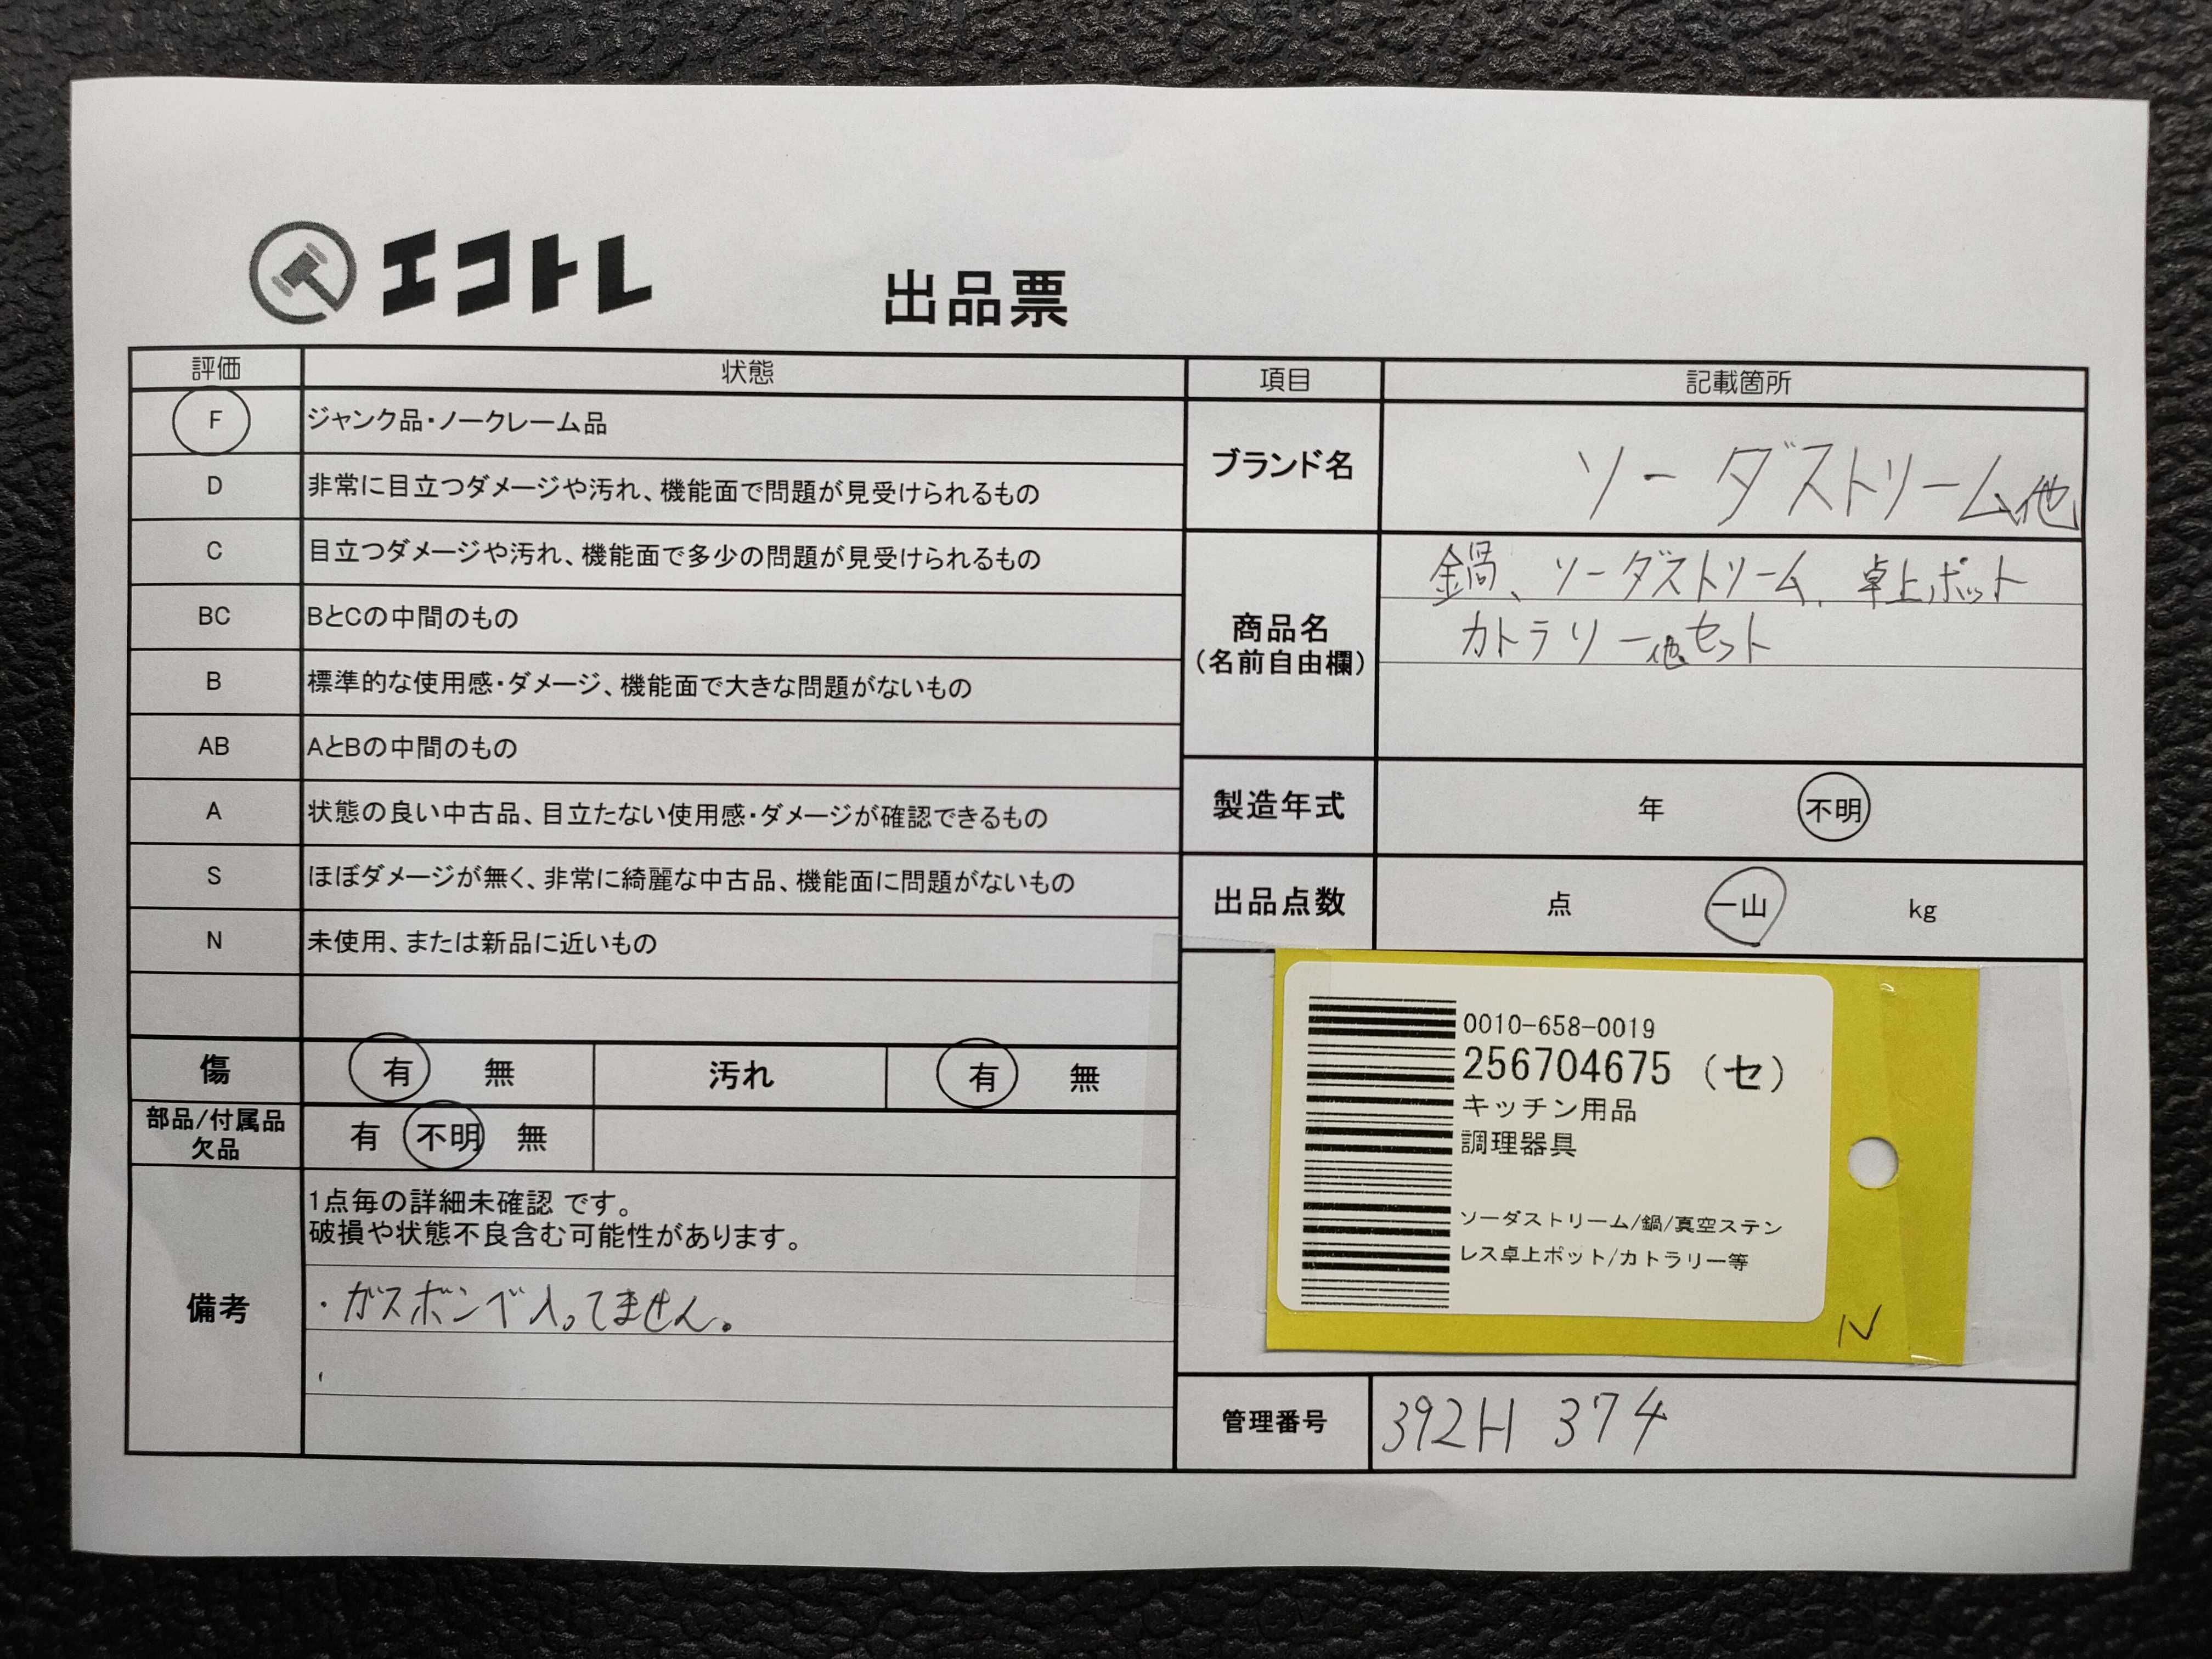 エコトレ
出品票
評価 状態
F ジャンク品・ノークレーム品
D 非常に目立つダメージや汚れ、機能面で問題が見受けられるもの
C 目立つダメージや汚れ、機能面で多少の問題が見受けられるもの
BC BとCの中間のもの
B 標準的な使用感・ダメージ、機能面で大きな問題がないもの
AB AとBの中間のもの
A 状態の良い中古品、目立たない使用感・ダメージが確認できるもの
S ほぼダメージが無く、非常に綺麗な中古品、機能面に問題がないもの
N 未使用、または新品に近いもの
傷 有 無 汚れ 有 無
部品/付属品
欠品
有 不明 無
備考
1点毎の詳細未確認 です。
破損や状態不良含む可能性があります。
・ガスボンベ入ってません。
項目 記載箇所
ブランド名 ソーダストリーム他
商品名
(名前自由欄)
鍋、ソーダストリーム、卓上ポット
カトラリー他セット
製造年式 年 不明
出品点数 点 一山 kg
0010-658-0019
256704675 (セ)
キッチン用品
調理器具
ソーダストリーム/鍋/真空ステン
レス卓上ポット/カトラリー等
N
管理番号 392H 374